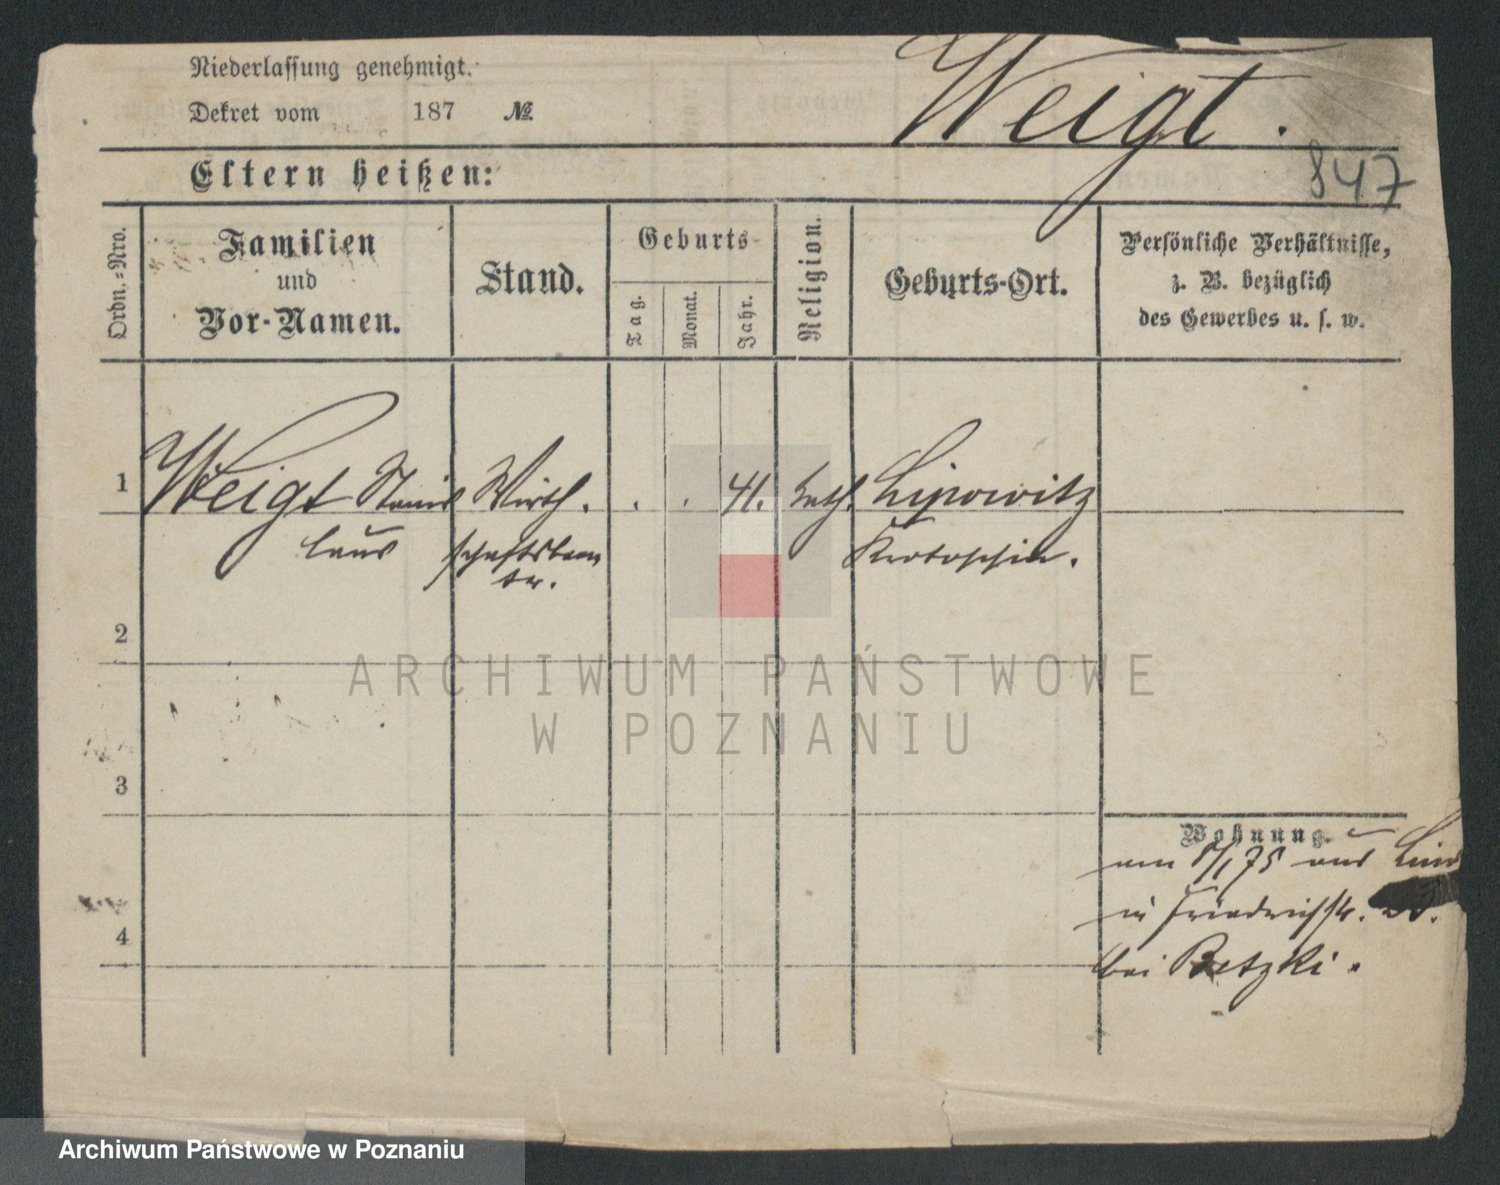 Niederlassung genehmigt.
Dekret vom 187 №
Weigt.
847
Eltern heißen:
Ordn.-Nro.
Familien
und
Vor-Namen.
Stand.
Geburts-
Tag.
Monat.
Jahr.
Religion.
Geburts-Ort.
Persönliche Verhältnisse,
z. B. bezüglich
des Gewerbes u. s. w.
1 Weigt Stanis Wirth. . . 41. kath. Lipowitz
laus schaftsbeam Krotoschin.
ter.
2
3
4
Wohnung.
am 5/1 75 aus
in Friedrichstr.
bei Betzki.
ARCHIWUM PAŃSTWOWE
W POZNANIU
Archiwum Państwowe w Poznaniu